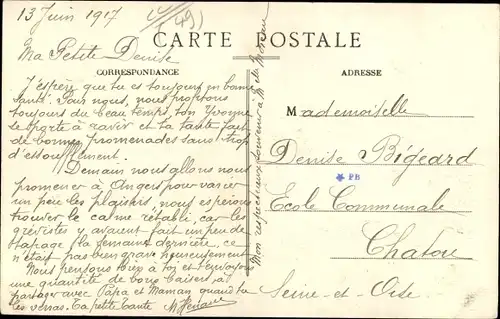 13 Juin 1917
(49)
CARTE POSTALE
CORRESPONDANCE
ADRESSE
Ma Petite Denise
J'espère que tu es toujours en bonne
santé. Pour nous, nous profitons
toujours du beau temps, ton Yvonne
se porte à ravir et ta tante fait
de bonnes promenades sans trop
d'essoufflement.
Demain nous allons nous
promener à Angers pour varier
un peu les plaisirs, nous espérons
trouver le calme rétabli, car les
grévistes y avaient fait un peu de
tapage la semaine dernière, ce
n'était pas bien grave heureusement
Nous pensons bien à toi et t'envoyons
une quantité de bons baisers, à
partager avec Papa et Maman quand tu
les verras. Ta petite tante
Mon respectueux souvenir à Melle
Mademoiselle
Denise Bigeard
PB
Ecole Communale
Chatou
Seine-et-Oise